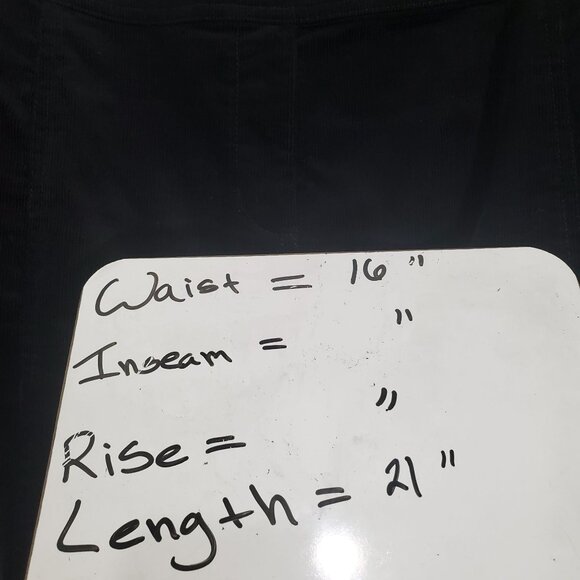 Waist = 16 "
Inseam = "
Rise = "
Length = 21 "